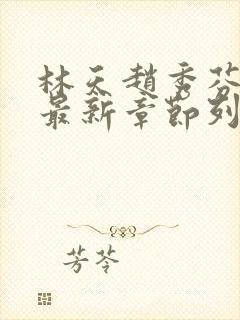 林天趙秀芬
最新章節列
芳苓